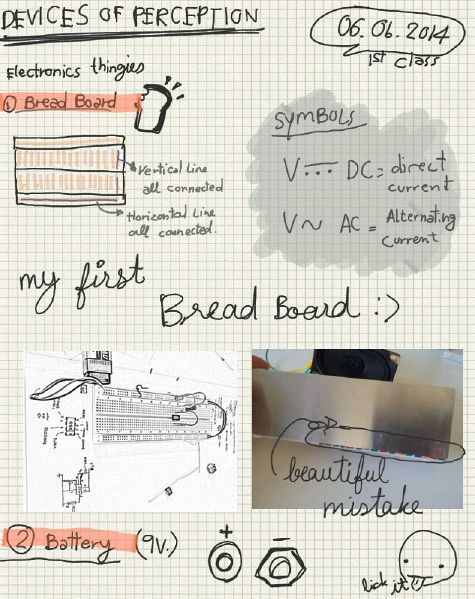 DEVICES OF PERCEPTION
06.06.2014
1st class
Electronics thingies
① Bread Board
SYMBOLS
V⎓ DC = direct current
V~ AC = Alternating current
Vertical Line
all connected
Horizontal Line
all connected.
my first
Bread Board :)
beautiful
mistake
② Battery (9V.)
+
−
lick it